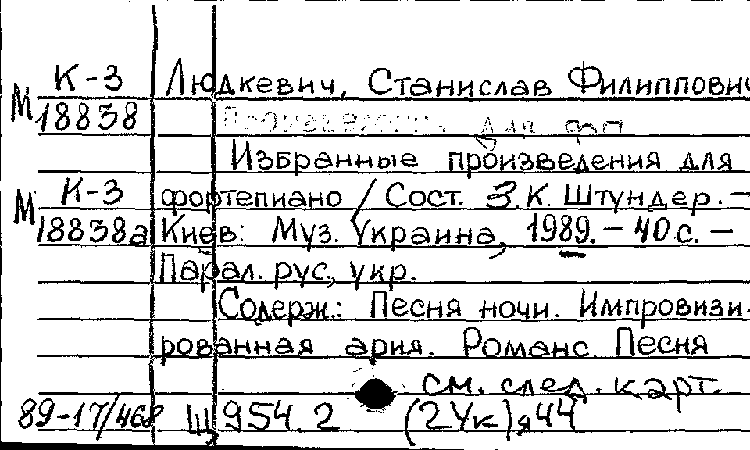 К-3 Людкевич, Станислав Филиппович
М 18838 Произведения для фп
Избранные произведения для
К-3 фортепиано / Сост. З.К. Штундер. –
М 18838а Киев: Муз. Украина, 1989. – 40 с. –
Парал. рус, укр.
Содерж.: Песня ночи. Импровизи-
рованная ария. Романс. Песня
см. след. карт.
89-17/468 Щ 954.2 (2Ук)я44